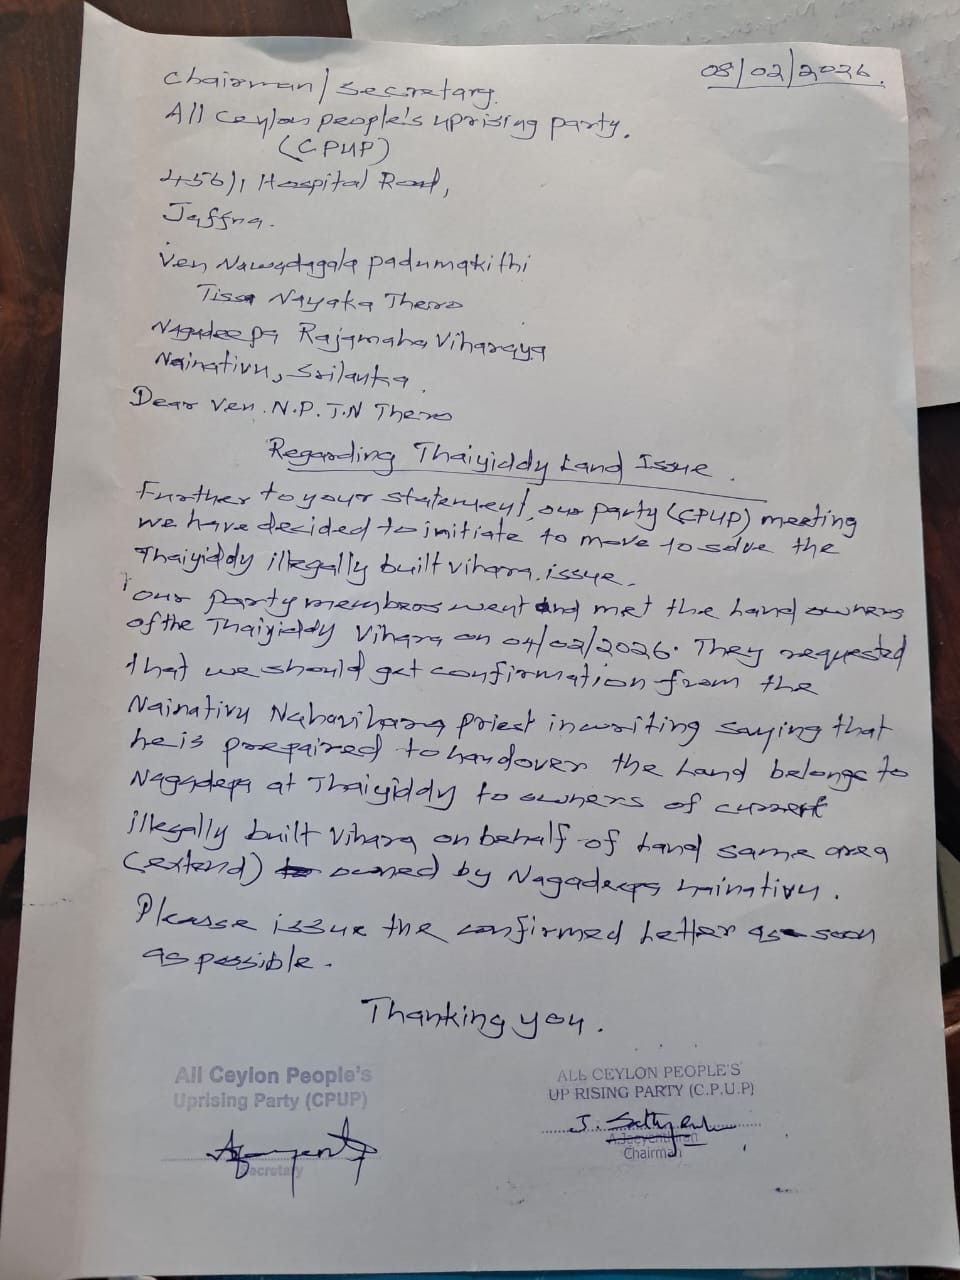 08/02/2026.
Chairman/secretary.
All Ceylon people's uprising party.
(CPUP)
456/1 Hospital Road,
Jaffna.
Ven Nawadagala padumakithi
Tissa Nayaka Thero
Nagadeepa Rajamaha Viharaya
Nainativu, Srilanka.
Dear Ven. N.P.T.N Thero
Regarding Thaiyiddy Land Issue.
Further to your statement, our party (CPUP) meeting
we have decided to initiate to move to solve the
Thaiyiddy illegally built vihara issue.
our party members went and met the Land owners
of the Thaiyiddy Vihara on 04/02/2026. They requested
that we should get confirmation from the
Nainativu Nahavihara priest in writing saying that
he is prepaired to handover the Land belongs to
Nagadepa at Thaiyiddy to owners of current
illegally built Vihara on behalf of Land same area
(extend) owned by Nagadeepa nainativu.
Please issue the confirmed Letter as soon
as possible.
Thanking you.
All Ceylon People's
Uprising Party (CPUP)
Secretary
ALL CEYLON PEOPLE'S
UP RISING PARTY (C.P.U.P)
Chairman